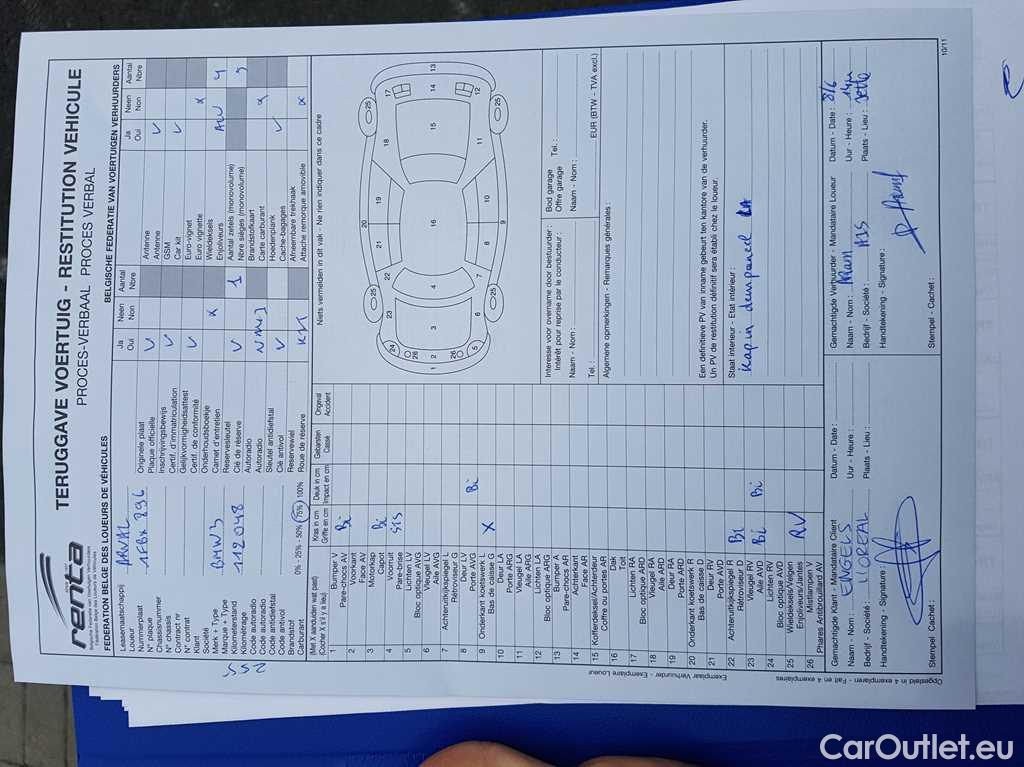 renta
TERUGGAVE VOERTUIG - RESTITUTION VEHICULE
PROCES-VERBAAL PROCES VERBAL
FEDERATION BELGE DES LOUEURS DE VÉHICULES
BELGISCHE FEDERATIE VAN VOERTUIGEN VERHUURDERS
Leasemaatschappij
Loueur
ARVAL
Nummerplaat
N° plaque
1FBX 896
Chassisnummer
N° chassis
Contract nr
N° contrat
Klant
Société
Merk + Type
Marque + Type
BMW 3
Kilometerstand
Kilométrage
118048
Code autoradio
Code autoradio
Code antidiefstal
Code antivol
Brandstof
Carburant
0% - 25% - 50% - 75% - 100%
Ja Neen Aantal
Oui Non Nbre
Originele plaat
Plaque officielle
Inschrijvingsbewijs
Certif. d'immatriculation
Gelijkvormigheidsattest
Certif. de conformité
Onderhoudsboekje
Carnet d'entretien
x
Reservesleutel
Clé de réserve
1
Autoradio
Autoradio
Sleutel antidiefstal
Clé antivol
Reservewiel
Roue de réserve
Kit
Ja Neen Aantal
Oui Non Nbre
Antenne
Antenne
GSM
Car kit
Euro-vignet
Euro vignette
x
Wieldeksels
Enjoliveurs
ALU 4
Aantal zetels (monovolume)
Nbre sièges (monovolume)
Brandstofkaart
Carte carburant
x
Hoedenplank
Cache-bagages
Afneembare trekhaak
Attache remorque amovible
x
(Met X aanduiden wat past)
(Cocher X s'il y a lieu)
Kras in cm
Griffe en cm
Deuk in cm
Impact en cm
Gebarsten
Cassé
Ongeval
Accident
1 Bumper V
Pare-chocs AV
Bi
2 Voorkant
Face AV
3 Motorkap
Capot
Bi
4 Voorruit
Pare-brise
5 Lichten LV
Bloc optique AVG
6 Vleugel LV
Aile AVG
7 Achteruitkijkspiegel L
Rétroviseur G
8 Deur LV
Porte AVG
Bi
9 Onderkant koetswerk L
Bas de caisse G
X
10 Deur LA
Porte ARG
11 Vleugel LA
Aile ARG
12 Lichten LA
Bloc optique ARG
13 Bumper A
Pare-chocs AR
14 Achterkant
Face AR
15 Kofferdeksel/Achterdeur
Coffre ou portes AR
16 Dak
Toit
17 Lichten RA
Bloc optique ARD
18 Vleugel RA
Aile ARD
19 Deur RA
Porte ARD
20 Onderkant koetswerk R
Bas de caisse D
21 Deur RV
Porte AVD
22 Achteruitkijkspiegel R
Rétroviseur D
Bi
23 Vleugel RV
Aile AVD
Bi Bi
24 Lichten RV
Bloc optique AVD
25 Wieldeksels/Velgen
Enjoliveurs/Jantes
RV
26 Mistlampen V
Phares Antibrouillard AV
Niets vermelden in dit vak - Ne rien indiquer dans ce cadre
Interesse voor overname door bestuurder :
Intérêt pour reprise par le conducteur :
Naam - Nom :
Tel. :
Bod garage
Offre garage
Tel. :
Naam - Nom :
EUR (BTW - TVA excl.)
Algemene opmerkingen - Remarques générales :
Een definitieve PV van inname gebeurt ten kantore van de verhuurder.
Un PV de restitution définitif sera établi chez le loueur.
Staat interieur - Etat intérieur :
Gemachtigde Klant - Mandataire Client
Datum - Date :
Naam - Nom : ENGELS
Uur - Heure :
Bedrijf - Société : L'OREAL
Plaats - Lieu :
Handtekening - Signature :
Stempel - Cachet :
Gemachtigde Verhuurder - Mandataire Loueur
Datum - Date : 8/6
Naam - Nom :
Uur - Heure : 14u
Bedrijf - Société : AIS
Plaats - Lieu : Jette
Handtekening - Signature :
Stempel - Cachet :
Opgesteld in 4 exemplaren - Fait en 4 exemplaires
Exemplaar Verhuurder - Exemplaire Loueur
10/11
255
CarOutlet.eu